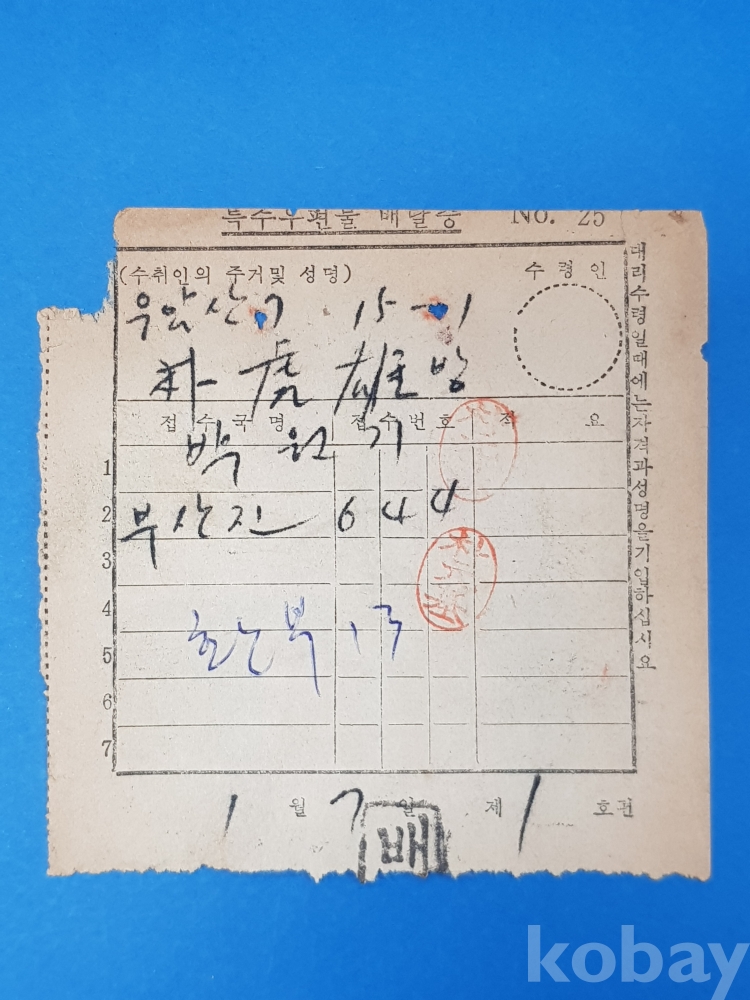 특수우편물 배달증 No. 25
(수취인의 주거및 성명) 수령인
우암산7 15-1
朴虎雄方
접수국명 접수번호 적요
박원기
1
2
부산진 644
3
4
5
13
6
7
대리수령일때에는자격과성명을기입하십시요
1월 7일 제1호편
배
kobay